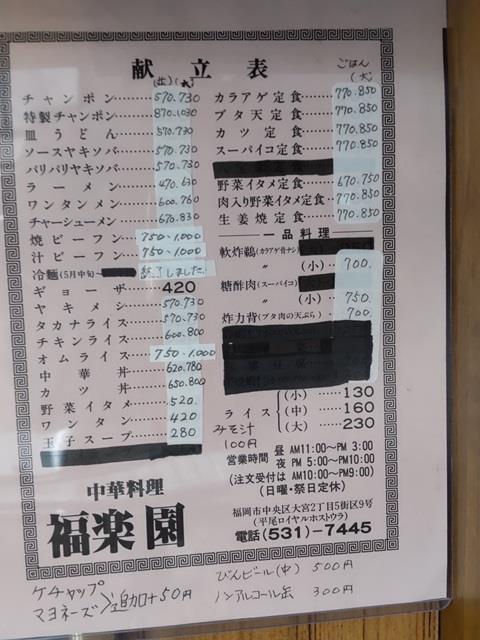 献立表
(並)(大)
チャンポン……570.730
特製チャンポン……870.1030
皿うどん……570.730
ソースヤキソバ……570.730
パリパリヤキソバ……570.730
ラーメン……470.630
ワンタンメン……600.760
チャーシューメン……670.830
焼ビーフン……750・1,000
汁ビーフン……750・1,000
冷麺(5月中旬〜 終了しました。
ギョーザ……420
ヤキメシ……570.730
タカナライス……570.730
チキンライス……600.800
オムライス……750・1,000
中華丼……620.780
カツ丼……650.800
野菜イタメ……520.
ワンタン……420
玉子スープ……280
中華料理
福楽園
ごはん
(大)
カラアゲ定食……770.850
ブタ天定食……770.850
カツ定食……770.850
スーパイコ定食……770.850
野菜イタメ定食……670.750
肉入り野菜イタメ定食…770.850
生姜焼定食……770.850
一品料理
軟炸鶏(カラアゲ骨ナシ)
〃 (小)…700.
糖酢肉(スーパイコ)
〃 (小)……750.
炸力背(ブタ肉の天ぷら)…700
(小)……130
ライス(中)……160
(大)……230
みそ汁
100円
営業時間 昼 AM11:00〜PM 3:00
夜 PM 5:00〜PM10:00
(注文受付は AM10:00〜PM9:00)
(日曜・祭日定休)
福岡市中央区大宮2丁目5街区9号
(平尾ロイヤルホストウラ)
電話(531)-7445
ケチャップ
マヨネーズ 追加+50円
びんビール(中) 500円
ノンアルコール缶 300円